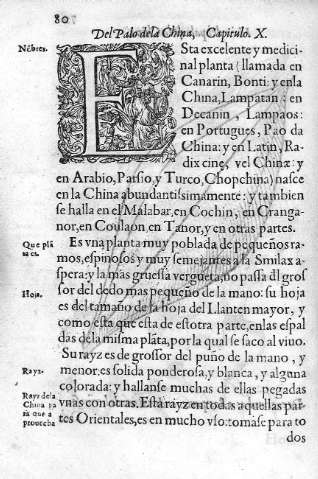 80
Del Palo dela China, Capitulo. X.
Nõbres.
ESta excelente y medici-
nal planta (llamada en
Canarin, Bonti: y en la
China, Lampatan: en
Decanin, Lampaos:
en Portugues, Pao da
China: y en Latin, Ra-
dix cinę, vel Chinæ: y
en Arabio, Parsio, y Turco, Chopchina) nasce
en la China abundantissimamente: y tambien
se halla en el Malabar, en Cochin, en Cranga-
nor, en Coulaon, en Tanor, y en otras partes.
Que plã
ta es.
Es vna planta muy poblada de pequeños ra-
mos, espinosos y muy semejantes a la Smilax a-
spera: y la mas gruessa vergueta, no passa dl gros
sor del dedo mas pequeño de la mano: su hoja
Hoja.
es del tamaño de la hoja del Llanten mayor, y
como esta que esta de estotra parte, en las espal
das dela misma plãta, por la qual se saco al viuo.
Su rayz es de grossor del puño de la mano, y
Rayz.
menor, es solida ponderosa, y blanca, y alguna
colorada: y hallanse muchas de ellas pegadas
Rayz dela
China pa
ra que a
prouecha
vnas con otras. Esta rayz en todas aquellas par-
tes Orientales, es en mucho vso: tomase para to
dos